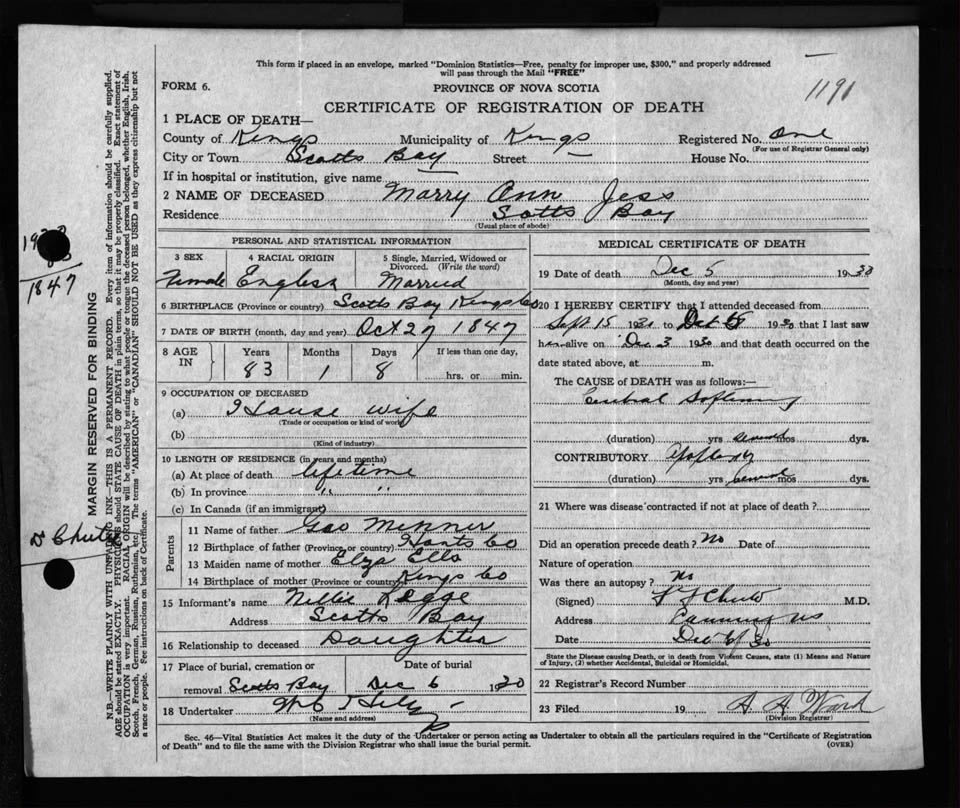 This form if placed in an envelope, marked "Dominion Statistics—Free, penalty for improper use, $300," and properly addressed
will pass through the Mail "FREE"
1191
FORM 6.
PROVINCE OF NOVA SCOTIA
CERTIFICATE OF REGISTRATION OF DEATH
1 PLACE OF DEATH—
County of Kings Municipality of Kings Registered No. One
(For use of Registrar General only)
City or Town Scotts Bay Street House No.
If in hospital or institution, give name
2 NAME OF DECEASED Marry Ann Jess
Residence Sotts Bay
(Usual place of abode)
PERSONAL AND STATISTICAL INFORMATION
3 SEX 4 RACIAL ORIGIN 5 Single, Married, Widowed or
Divorced. (Write the word)
Female English Married
6 BIRTHPLACE (Province or country) Scotts Bay Kings Co
7 DATE OF BIRTH (month, day and year) Oct 27 1847
8 AGE IN Years Months Days If less than one day,
83 1 8 hrs. or min.
9 OCCUPATION OF DECEASED
(a) House wife
(Trade or occupation or kind of work)
(b)
(Kind of industry)
10 LENGTH OF RESIDENCE (in years and months)
(a) At place of death lifetime
(b) In province " "
(c) In Canada (if an immigrant)
Parents
11 Name of father Gas Minner
12 Birthplace of father (Province or country) Hants Co
13 Maiden name of mother Elza Ells
14 Birthplace of mother (Province or country) Kings Co
15 Informant's name Nillis Legge
Address Scotts Bay
16 Relationship to deceased Daughter
17 Place of burial, cremation or Date of burial
removal Scotts Bay Dec 6 1930
18 Undertaker
(Name and address)
MEDICAL CERTIFICATE OF DEATH
19 Date of death Dec 5 1930
(Month, day and year)
20 I HEREBY CERTIFY that I attended deceased from
Sept 15 1930 to 1930 that I last saw
her alive on Dec 3 1930 and that death occurred on the
date stated above, at m.
The CAUSE of DEATH was as follows:—
Cerebral Softening
(duration) yrs several mos dys.
CONTRIBUTORY Apoplexy
(duration) yrs several mos dys.
21 Where was disease contracted if not at place of death?
Did an operation precede death? No Date of
Nature of operation
Was there an autopsy? no
(Signed) Chute M.D.
Address Canning NS
Date Dec 6/30
State the Disease causing Death, or in death from Violent Causes, state (1) Means and Nature
of Injury, (2) whether Accidental, Suicidal or Homicidal.
22 Registrar's Record Number
23 Filed 19 A A Ward
(Division Registrar)
Sec. 46—Vital Statistics Act makes it the duty of the Undertaker or person acting as Undertaker to obtain all the particulars required in the "Certificate of Registration
of Death" and to file the same with the Division Registrar who shall issue the burial permit.
(OVER)
MARGIN RESERVED FOR BINDING
N.B.—WRITE PLAINLY WITH UNFADING INK—THIS IS A PERMANENT RECORD. Every item of information should be carefully supplied.
AGE should be stated EXACTLY. PHYSICIANS should STATE CAUSE OF DEATH in plain terms, so that it may be properly classified. Exact statement of
OCCUPATION is very important. RACIAL ORIGIN will be described by stating to what people or tongue the deceased person belonged, whether English, Irish,
Scotch, French, German, Russian, Ruthenian, etc. The terms "AMERICAN" or "CANADIAN" SHOULD NOT BE USED as they express citizenship but not
a race or people. See instructions on back of Certificate.
1847
Dr Chute